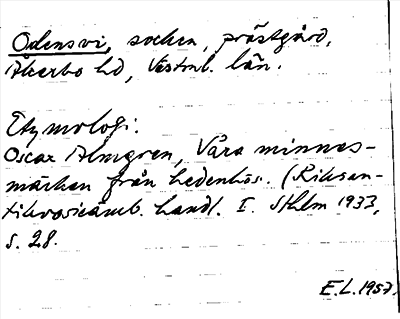 Odensvi, socken, prästgård,
Åkerbo hd, Västml. län.
Etymologi.
Oscar Almgren, Våra minnes-
märken från hednahös. (Riksan-
tikvarieämb. handl. I. Sthlm 1933,
s. 28.
E.L. 1957.